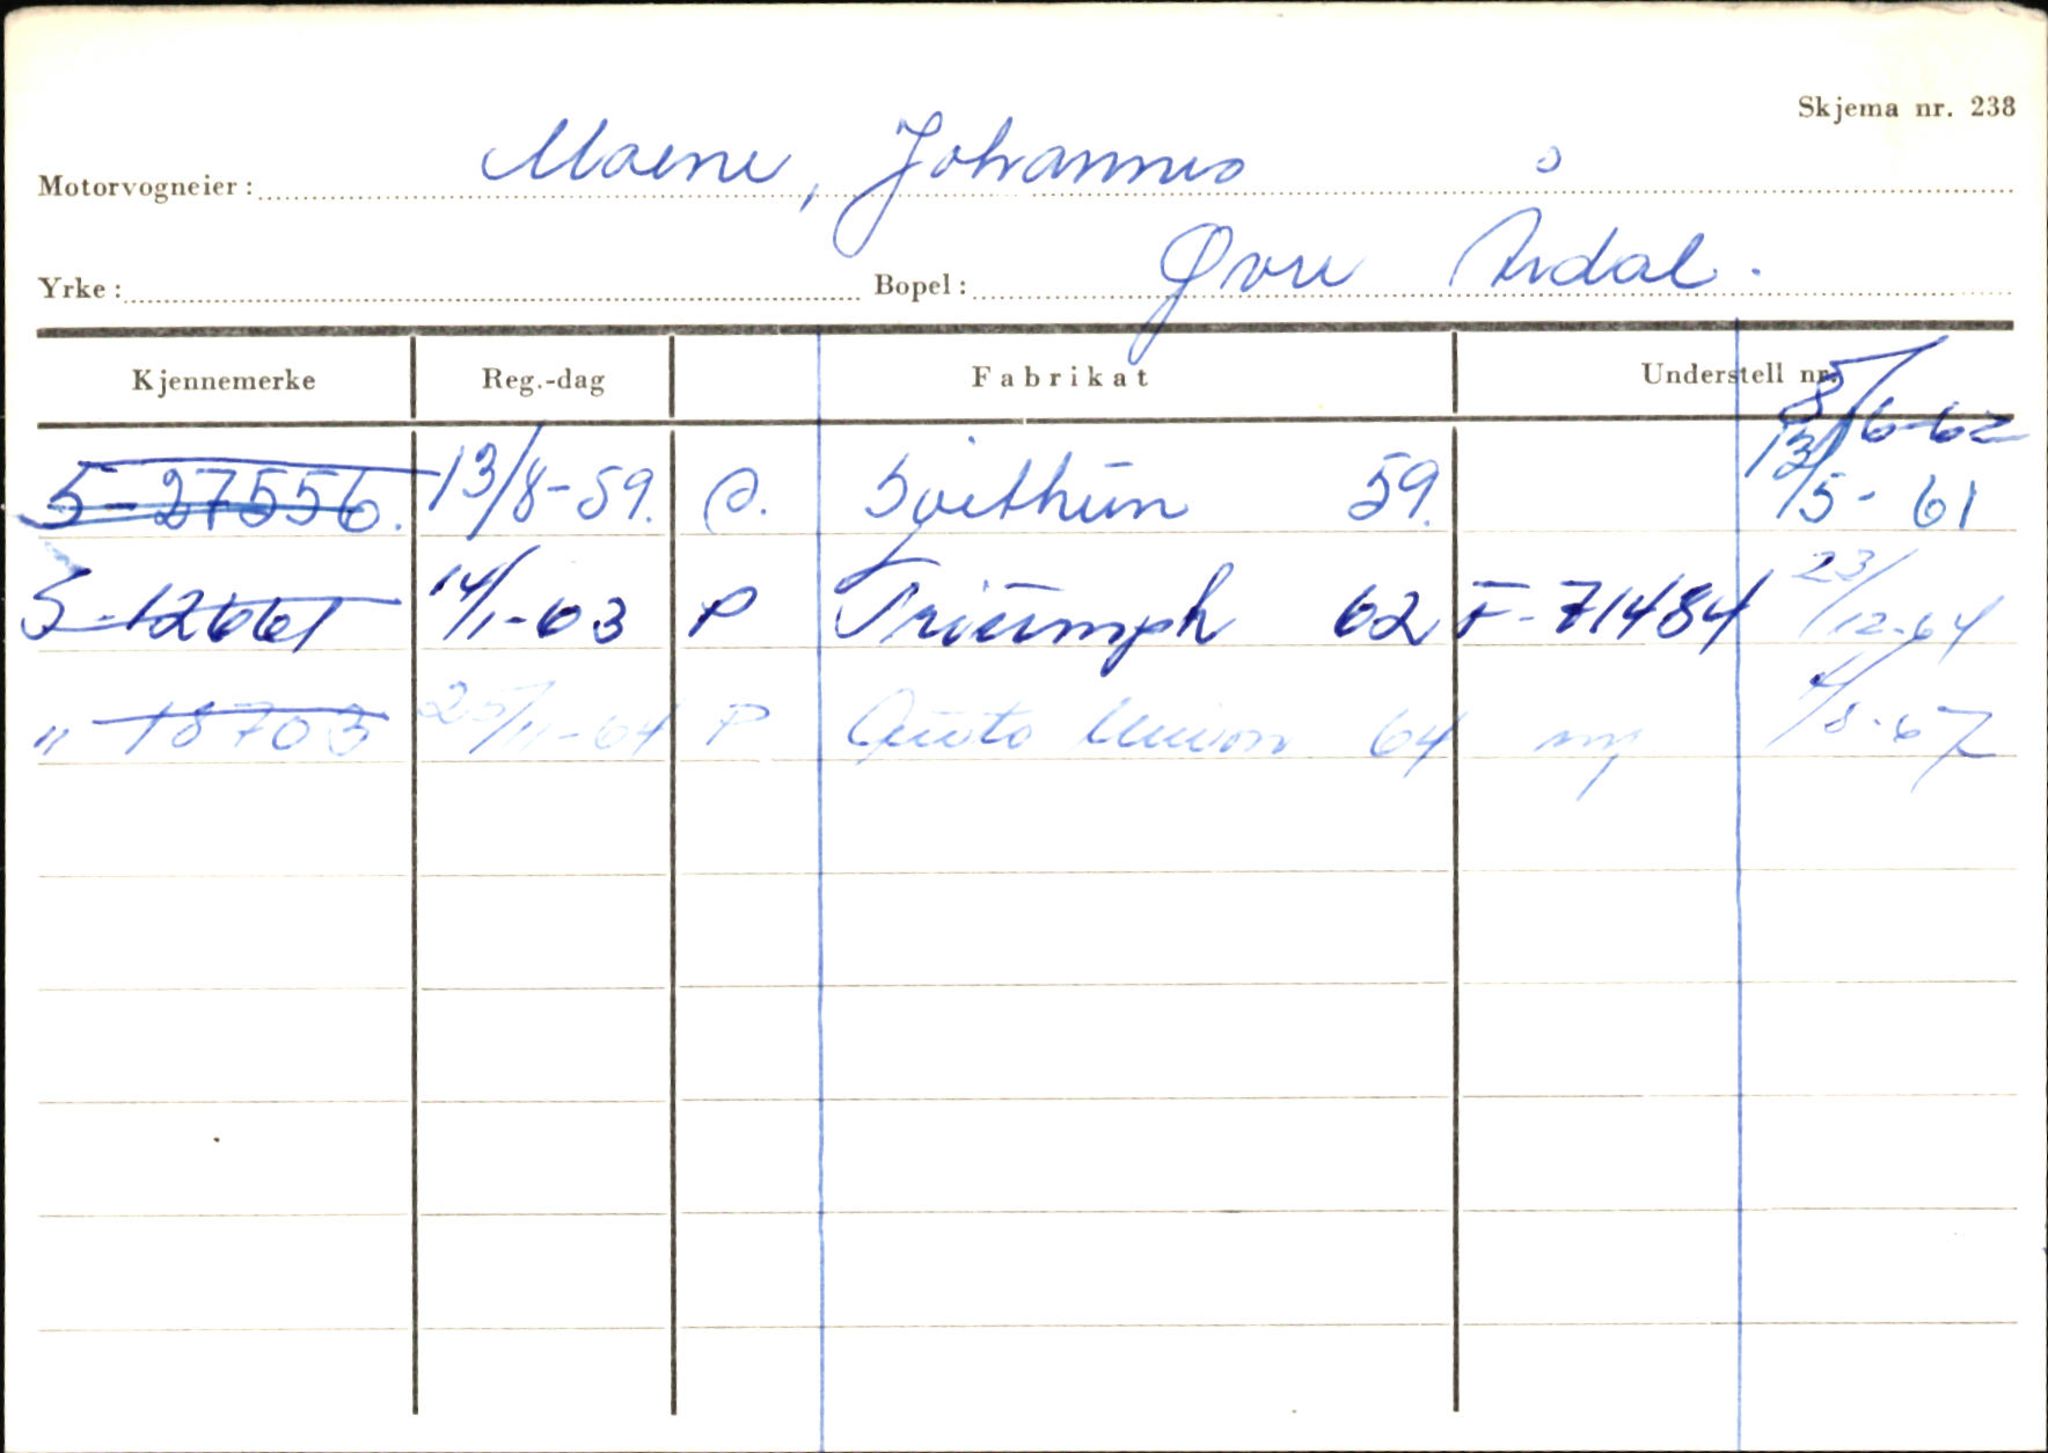 Skjema nr. 238
Motorvogneier: Moene, Johannes
Yrke: Bopel: Øvre Årdal.
Kjennemerke Reg.-dag Fabrikat Understell nr.
6-62
S-27556. 13/8-59. Svithun 59. 13/5-61
S-12661 14/1-63 P Triumph 62 F-71484 23/12-64
" 18703 25/11-64 P Auto Union 64 ny /8-67